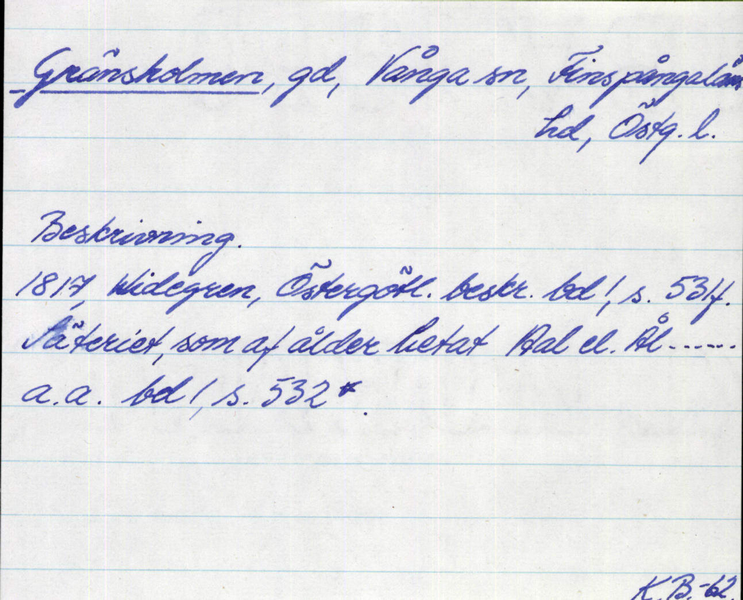 Gränsholmen, gd, Vånga sn, Finspångalän
hd, Östg. l.
Beskrivning.
1817, Widegren, Östergötl. beskr. bd 1, s. 531f.
Säteriet, som af ålder hetat Aal el. Ål------
a.a. bd 1, s. 532 *.
K.B.-62.